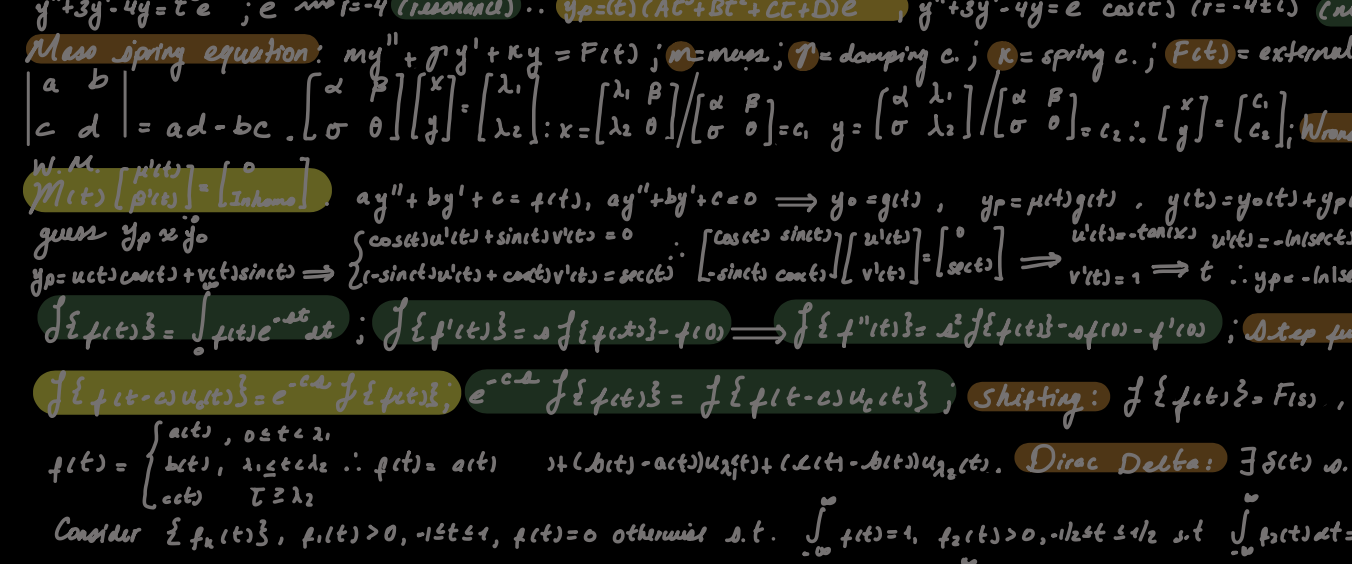 y''+3y'-4y=t²e ; e r=-4 (resonance) .. yp=(t)(At³+Bt²+Ct+D)e ; y''+3y'-4y=e cos(t) (r=-4±i)
Mass spring equation: my''+γy'+ky = F(t) ; m=mass; γ= damping c.; k= spring c.; F(t)= external
|a b; c d| = ad-bc . [α β; σ θ][x; y]=[λ₁; λ₂] : x=[λ₁ β; λ₂ θ]/[α β; σ θ]=c₁ y=[α λ₁; σ λ₂]/[α β; σ θ]=c₂ ∴ [x; y]=[c₁; c₂];
W.M.
M(t)[μ'(t); β'(t)]=[0; Inhomo] . ay''+by'+c=f(t), ay''+by'+c=0 ⟹ y₀=g(t) , yp=μ(t)g(t) . y(t)=y₀(t)+yp
guess yp ≈ y₀
yp=u(t)cos(t)+v(t)sin(t) ⟹ {cos(t)u'(t)+sin(t)v'(t)=0; (-sin(t)u'(t)+cos(t)v'(t)=sec(t) ∴ [cos(t) sin(t); -sin(t) cos(t)][u'(t); v'(t)]=[0; sec(t)] ⟹ u'(t)=-tan(x) v'(t)=1 ⟹ u'(t)=-ln(sect) t ∴ yp=-ln|s
ℐ{f(t)}=∫₀^∞ f(t)e^-st dt ; ℐ{f'(t)}=sℐ{f(t)}-f(0) ⟹ ℐ{f''(t)}=s²ℐ{f(t)}-sf(0)-f'(0) ; Step
ℐ{f(t-c)u₀(t)}=e^-cs ℐ{f(t)}; e^-cs ℐ{f(t)}=ℐ{f(t-c)u_c(t)} ; Shifting: ℐ{f(t)}=F(s) ,
f(t)={a(t) , 0≤t<λ₁; b(t), λ₁≤t<λ₂; c(t) τ≥λ₂ ∴ f(t)=a(t) )+(b(t)-a(t))u_λ₁(t)+(c(t)-b(t))u_λ₂(t). Dirac Delta: ∃ δ(t) s.
Consider {fₙ(t)}, f₁(t)>0,-1≤t≤1, f(t)=0 otherwise s.t. ∫_-∞^∞ f(t)=1, f₂(t)>0,-1/2≤t≤1/2 s.t ∫_-∞^∞ f₂(t)dt=